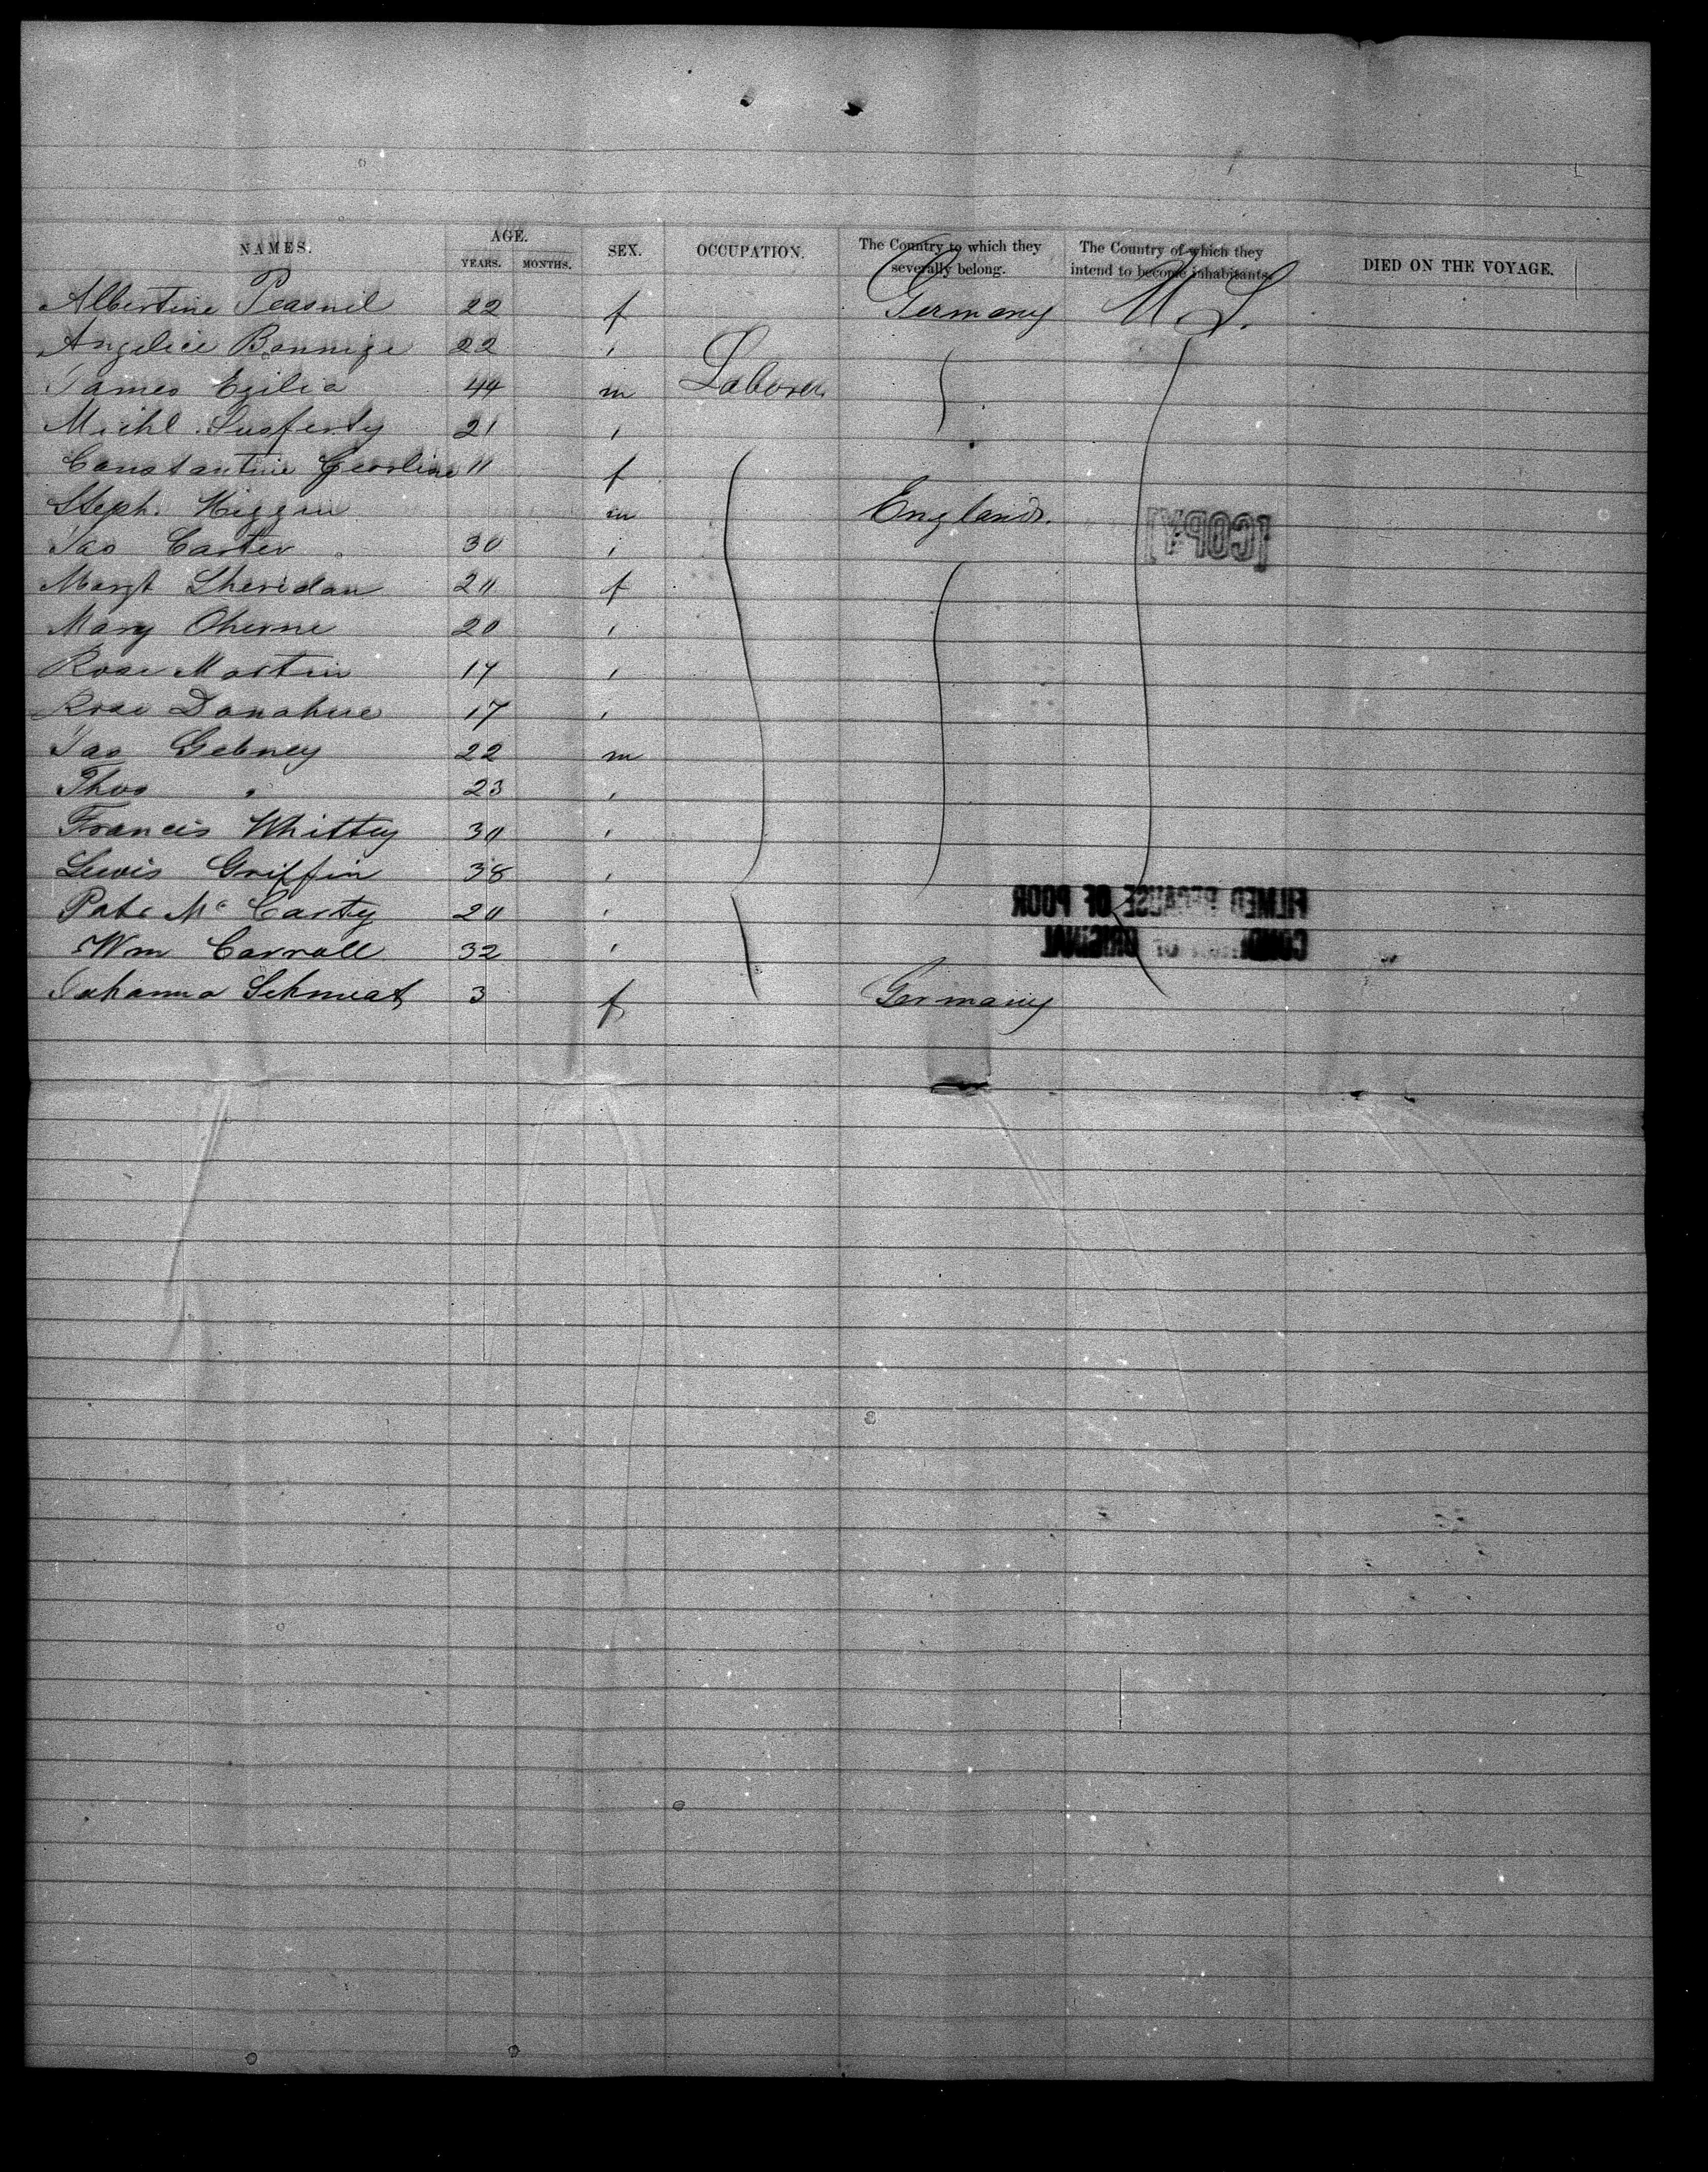 NAMES. AGE. YEARS. MONTHS. SEX. OCCUPATION. The Country to which they severally belong. The Country of which they intend to become inhabitants. DIED ON THE VOYAGE.
Albertine 22 f Germany U.S.
Angelice 22 "
James 44 m Laborer
Michl 21 "
Constantine 11 f
Steph. Higgin m England.
Jas Carter 30 "
Margt Sheridan 20 f
Mary Oherne 20 "
Rose Martin 17 "
Rose Donahue 17 "
Jas Gebney 22 m
Thos " 23 "
Francis Whittey 30 "
Lewis Griffin 38 "
Patk McCarty 20 "
Wm Carroll 32 "
Johanna 3 f Germany
[COPY]
FILMED BECAUSE OF POOR
CONDITION OF ORIGINAL